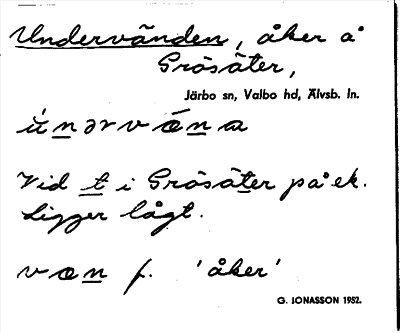 Undervänden, åker å
Gräsäter,
Järbo sn, Valbo hd, Älvsb. ln.
ùnərvǽna
Vid t i Gräsäter på ek.
Ligger lågt.
væn f. 'åker'
G. JONASSON 1952.